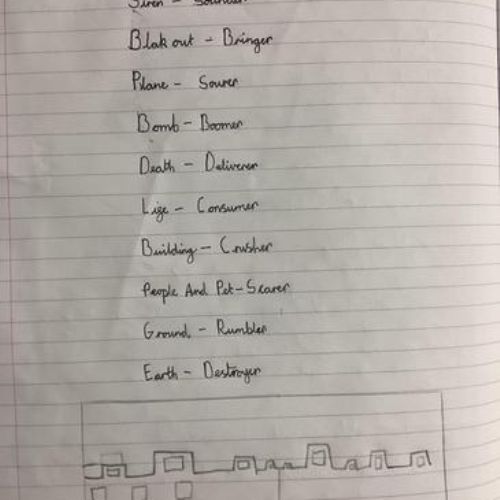 Siren - Sounder
Blak out - Bringer
Plane - Sourer
Bomb - Boomer
Death - Deliverer
Life - Consumer
Building - Crusher
People And Pet - Scarer
Ground - Rumbler
Earth - Destroyer